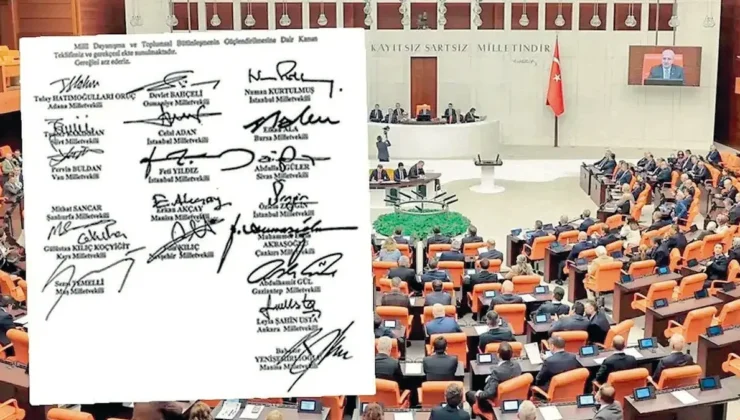 Milli Dayanışma ve Toplumsal Bütünleşmenin Güçlendirilmesine Dair Kanun
Teklifimiz ve gerekçesi ekte sunulmaktadır.
Gereğini arz ederiz.
Tülay HATIMOĞULLARI ORUÇ
Adana Milletvekili
Devlet BAHÇELİ
Osmaniye Milletvekili
Numan KURTULMUŞ
İstanbul Milletvekili
Milletvekili
Celal ADAN
İstanbul Milletvekili
ALA
Bursa Milletvekili
Pervin BULDAN
Van Milletvekili
Feti YILDIZ
İstanbul Milletvekili
Abdullah GÜLER
Sivas Milletvekili
Mithat SANCAR
Şanlıurfa Milletvekili
Erkan AKÇAY
Manisa Milletvekili
İstanbul Milletvekili
Gülüstan KILIÇ KOÇYİĞİT
Kars Milletvekili
KILIÇ
Milletvekili
AKBAŞOĞLU
Çankırı Milletvekili
Sezai TEMELLİ
Muş Milletvekili
Abdulhamit GÜL
Gaziantep Milletvekili
Leyla ŞAHİN USTA
Ankara Milletvekili
Bahadır
YENİŞEHİRLİOĞLU
Manisa Milletvekili
KAYITSIZ ŞARTSIZ MİLLETİNDİR